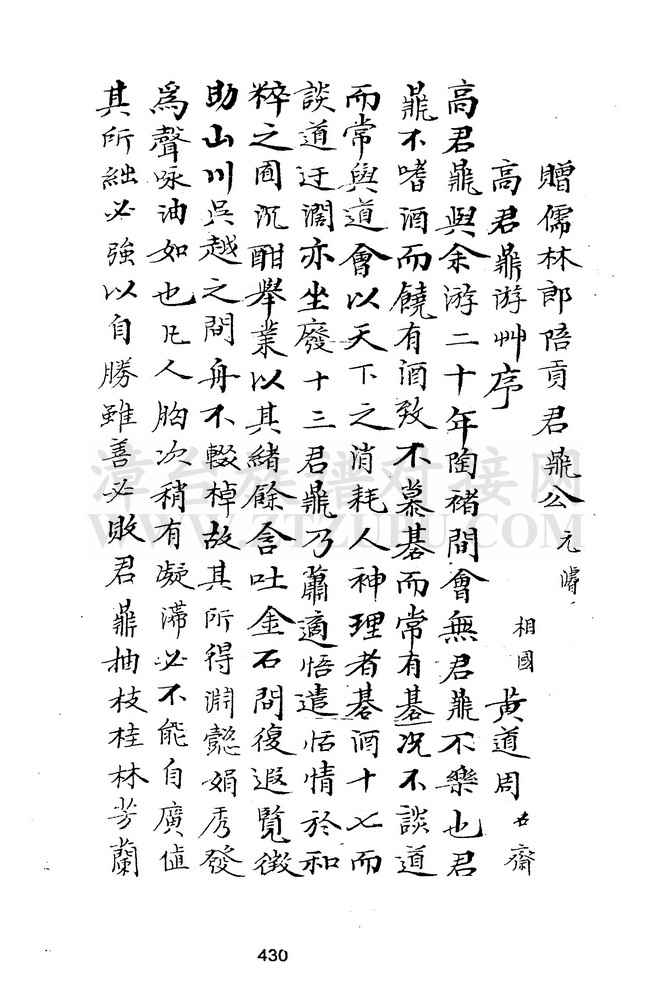 贈儒林郎陪貢君鼎公元濬
高君鼎游艸序 相國黃道周石齋
高君鼎與余游二十年陶褚間會無君鼎不樂也君
鼎不嗜酒而饒有酒致不慕碁而常有碁況不談道
而常與道會以天下之消耗人神理者碁酒十七而
談道迂濶亦坐廢十三君鼎乃蕭適悟遣恬情於和
粹之囿沉酣舉業以其緒餘含吐金石間復遐覽徵
助山川吳越之間舟不輟棹故其所得淵懿娟秀發
爲聲咏油如也凡人胸次稍有凝滯必不能自廣値
其所絀必強以自勝雖善必敗君鼎抽枝桂林芳蘭
漳台族谱对接网
WWW.ZTZUPU.COM
430